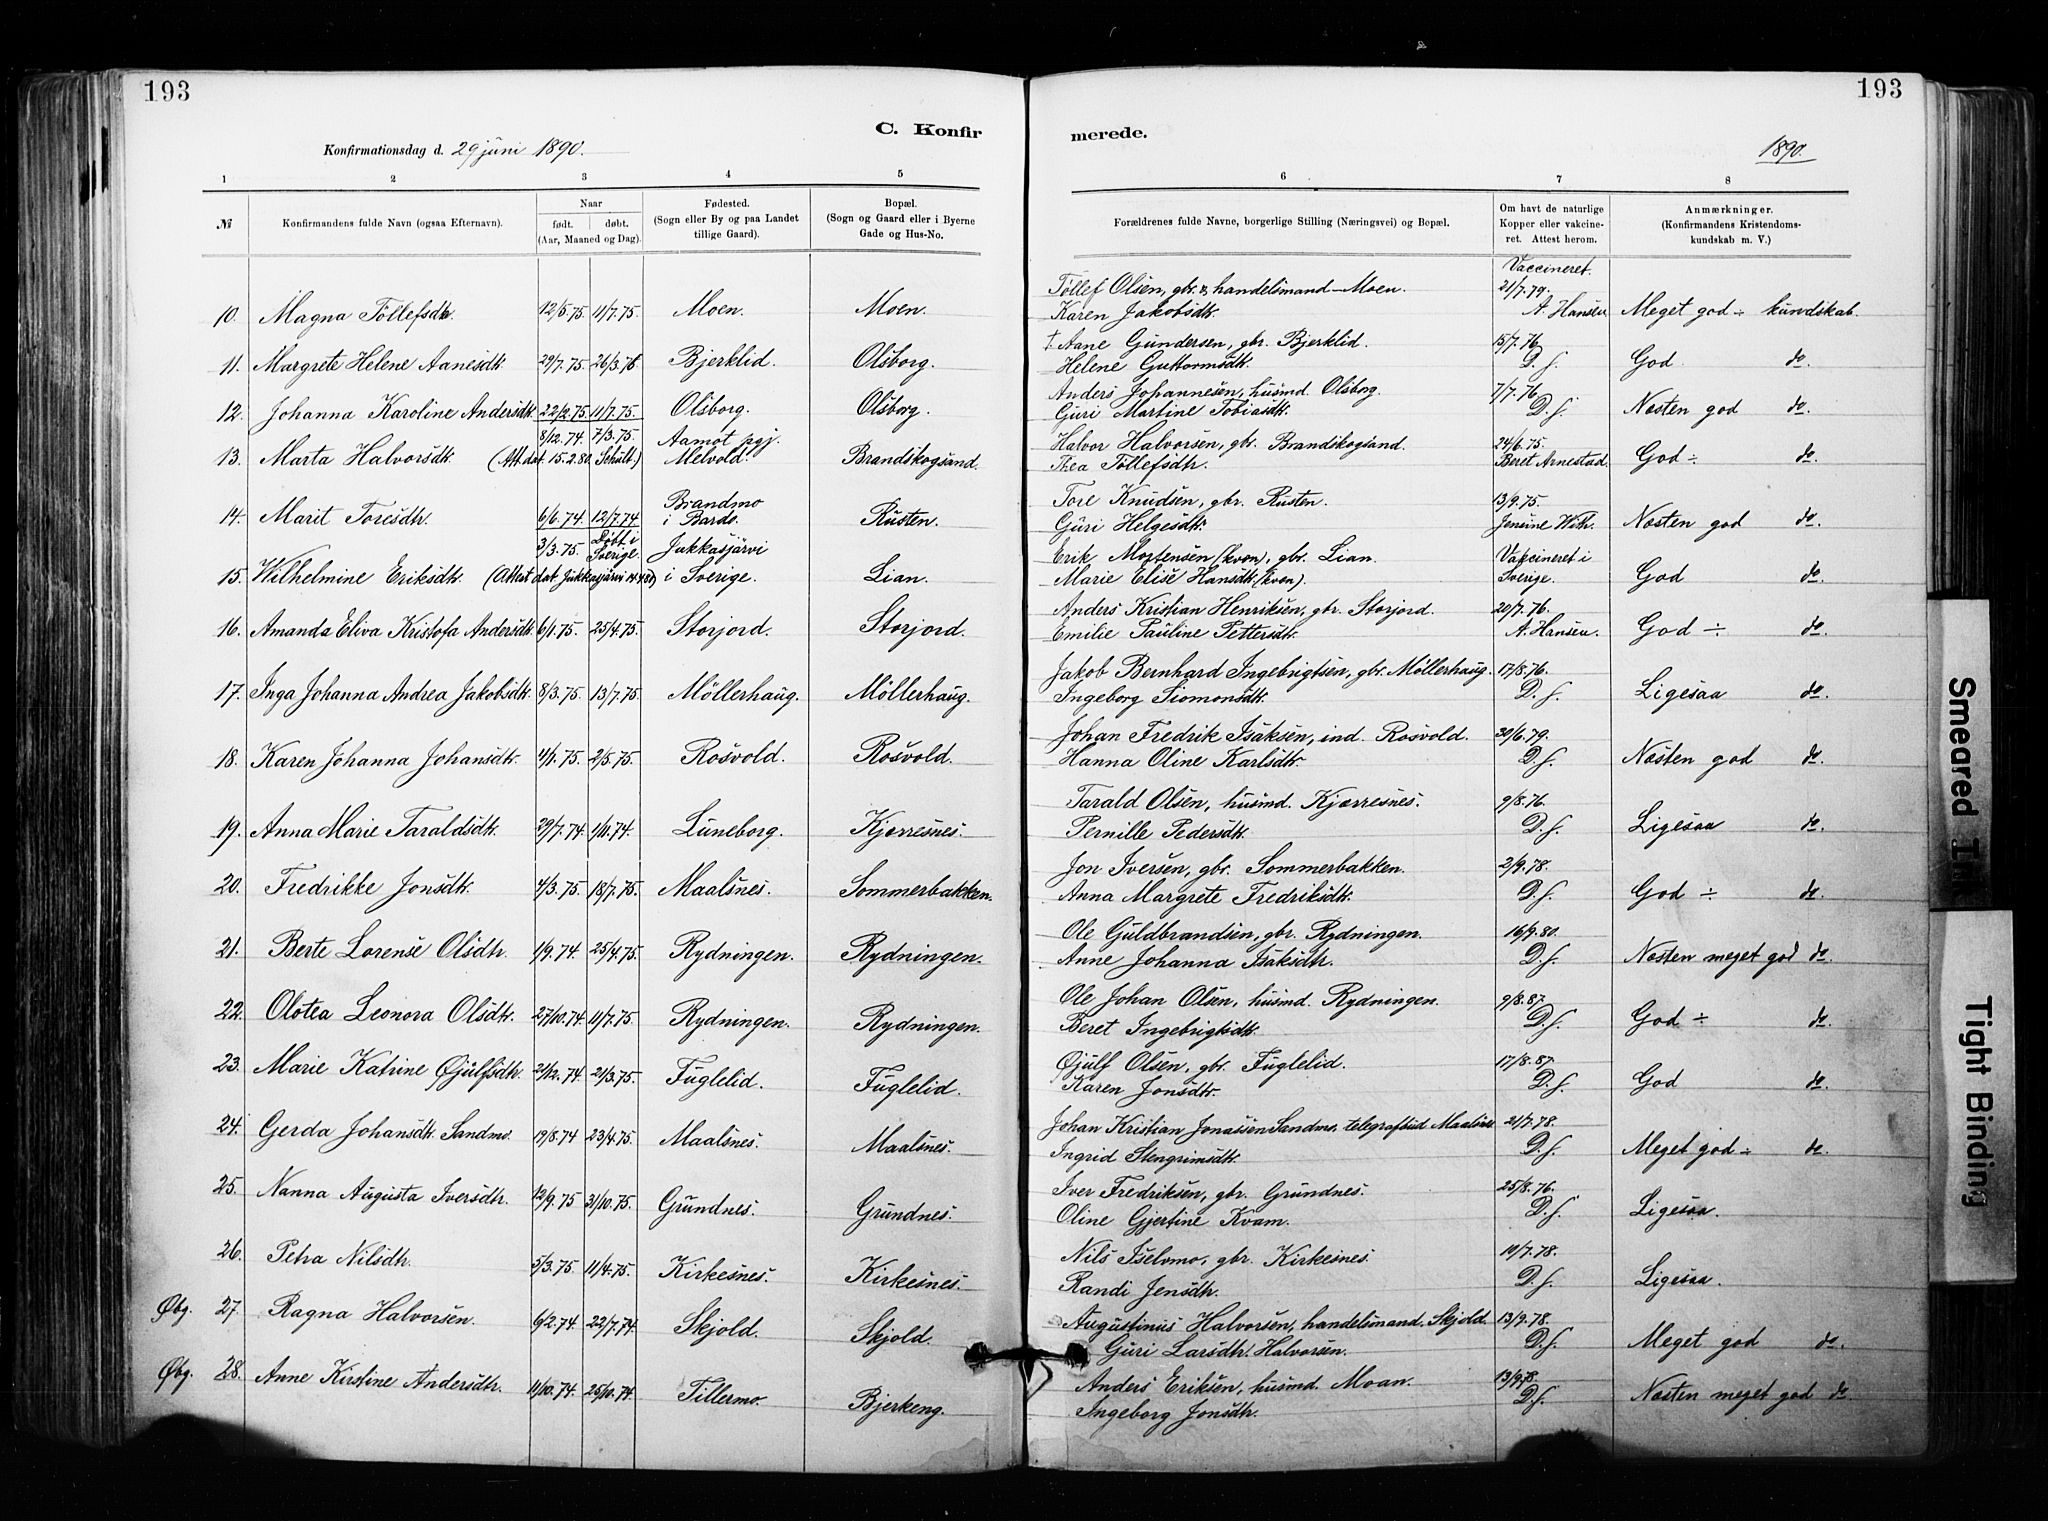 193
193
C. Konfir
merede.
Konfirmationsdag d. 29 juni 1890.
1890.
1 2 3 4 5 6 7 8
№ Konfirmandens fulde Navn (ogsaa Efternavn). Naar født. døbt. (Aar, Maaned og Dag). Fødested. (Sogn eller By og paa Landet tillige Gaard). Bopæl. (Sogn og Gaard eller i Byerne Gade og Hus-No. Forældrenes fulde Navne, borgerlige Stilling (Næringsvei) og Bopæl. Om havt de naturlige Kopper eller vakcineret. Attest herom. Anmærkninger. (Konfirmandens Kristendomskundskab m. V.)
Vaccineret.
Tøllef Olsen, gbr. & handelsmand Moen. 21/7.79.
10. Magna Töllefsdtr. 12/5.75. 11/7.75. Moen. Moen. Karen Jakobsdtr. A. Hansen Meget god ÷ kundskab.
†. Aane Gundersen, gbr. Bjerklid. 15/7.76
11. Margrete Helene Aanesdtr. 29/7.75. 26/3.76 Bjerklid. Olsborg. Helene Guttormsdtr. D. s. God. do.
Anders Johannesen, husmd. Olsborg. 7/7.76
12. Johanna Karoline Andersdtr. 22/2.75. 11/7.75. Olsborg. Olsborg. Guri Martine Tobiasdtr. D. s. Næsten god do.
8/12.74. 7/3.75. Aamot pgj. Halvor Halvorsen, gbr. Brandskogsand. 24/6.75.
13. Marta Halvorsdtr. (Att. dat. 15.2.80. Schült.) Melvold. Brandskogsand. Thea Töllefsdtr. Beret Arnestad. God ÷ do.
Brandmo Tore Knudsen, gbr. Rusten. 13/9.75.
14. Marit Toresdtr. 6/6.74. 12/7.74. i Bardo. Rusten. Guri Helgesdtr. Jensine With. Næsten god do.
3/3.75. Døbt i Sverige. Jukkasjärvi Erik Mortensen (kvæn), gbr. Lian. Vakcineret i
15. Wilhelmine Eriksdtr. (Attest dat Jukkasjärvi i Sverige. Lian. Marie Elise Hansdtr. (kvæn). Sverige. God do.
Anders Kristian Henriksen, gbr. Storjord. 20/7.76.
16. Amanda Eliva Kristofa Andersdtr. 6/1.75. 25/4.75. Storjord. Storjord. Emilie Pauline Pettersdtr. A. Hansen. God ÷ do.
Jakob Bernhard Ingebrigtsen, gbr. Möllerhaug. 17/8.76.
17. Inga Johanna Andrea Jakobsdtr. 8/3.75. 13/7.75. Möllerhaug. Möllerhaug. Ingeborg Siomonsdtr. D. s. Ligesaa do.
Johan Fredrik Isaksen, ind. Rosvold. 30/6.79.
18. Karen Johanna Johansdtr. 4/1.75. 2/5.75. Rosvold. Rosvold. Hanna Oline Karlsdtr. D. s. Næsten god do.
Tarald Olsen, husmd. Kjærresnes. 9/8.76.
19. Anna Marie Taraldsdtr. 29/7.74. 1/11.74. Luneborg. Kjærresnes. Pernille Pedersdtr. D. s. Ligesaa do.
Jon Iversen, gbr. Sommerbakken. 2/9.78.
20. Fredrikke Jonsdtr. 4/3.75. 18/7.75. Maalsnes. Sommerbakken. Anna Margrete Fredriksdtr. D. s. God ÷ do.
Ole Guldbrandsen, gbr. Rydningen. 16/9.80.
21. Berte Lorense Olsdtr. 1/9.74. 25/4.75. Rydningen. Rydningen. Anne Johanna Isaksdtr. D. s. Næsten meget god do.
Ole Johan Olsen, husmd. Rydningen. 9/8.87.
22. Olotea Leonora Olsdtr. 27/10.74. 11/7.75. Rydningen. Rydningen. Beret Ingebrigtsdtr. D. s. God ÷ do.
Øjulf Olsen, gbr. Fuglelid. 17/8.87.
23. Marie Katrine Øjulfsdtr. 2/12.74 21/3.75. Fuglelid. Fuglelid. Karen Jonsdtr. D. s. God do.
Johan Kristian Jonassen Sandmo, telegrafbud Maalsnes 21/7.78.
24. Gerda Johansdtr. Sandmo. 19/8.74 23/4.75. Maalsnes. Maalsnes. Ingrid Stengrimsdtr. D. s. Meget god ÷ do.
Iver Fredriksen, gbr. Grundnes. 25/8.76.
25. Nanna Augusta Iversdtr. 12/9.75 31/10.75. Grundnes. Grundnes. Oline Gjertine Kvam. D. s. Ligesaa.
Nils Iselvmo, gbr. Kirkesnes. 10/7.78.
26. Petra Nilsdtr. 5/3.75. 11/4.75. Kirkesnes. Kirkesnes. Randi Jensdtr. D. s. Ligesaa.
Augustinus Halvorsen, handelsmand. Skjold. 13/9.78.
Øbg. 27. Ragna Halvorsen. 6/2.74. 22/7.74. Skjold. Skjold. Guri Larsdtr. Halvorsen. D. s. Meget god do.
Anders Eriksen, husmd. Moan. 13/9.78.
Øbg. 28. Anne Kirstine Andersdtr. 11/10.74. 25/10.74. Tillermo. Bjerkeng. Ingeborg Jonsdtr. D. s. Næsten meget god do
Smeared Ink
Tight Binding